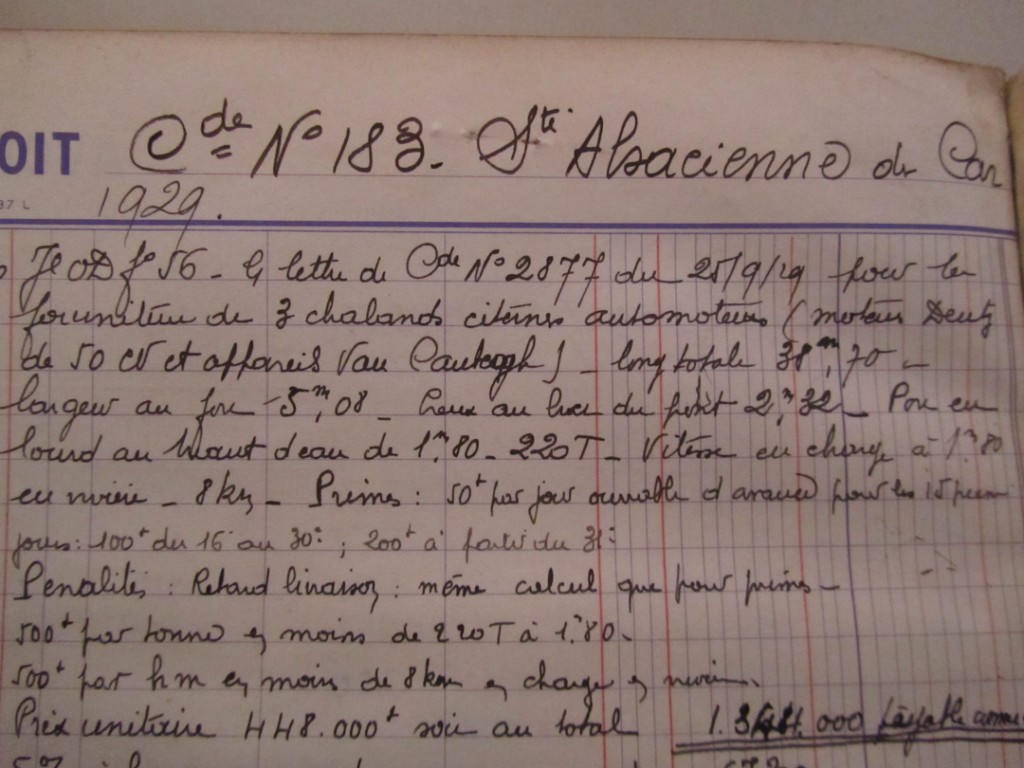 OIT Cde No 183. Sté Alsacienne de Car
37 L 1929.
JeOD fo 56 - & lettre de Cde No 2877 du 25/9/29 pour la
fourniture de 3 chalands citernes automoteurs (moteurs Deutz
de 50 CV et appareils Van ) - long totale 38m,70 -
largeur au fort - 5m,08 - Creux au livet du pont 2m,32 - Port en
lourd au tirant d'eau de 1m80 - 220T - Vitesse en charge à 1m80
en rivière - 8 km - Primes : 50f par jour ouvrable d'avance pour les 15 prem
jours : 100f du 16 au 30e ; 200f à partir du 31e
Penalités : Retard livraison : même calcul que pour primes -
500f par tonne en moins de 220T à 1m80.
500f par km en moins de 8 km en charge en rivière.
Prix unitaire 448.000f soit au total 1.344.000 payable comme